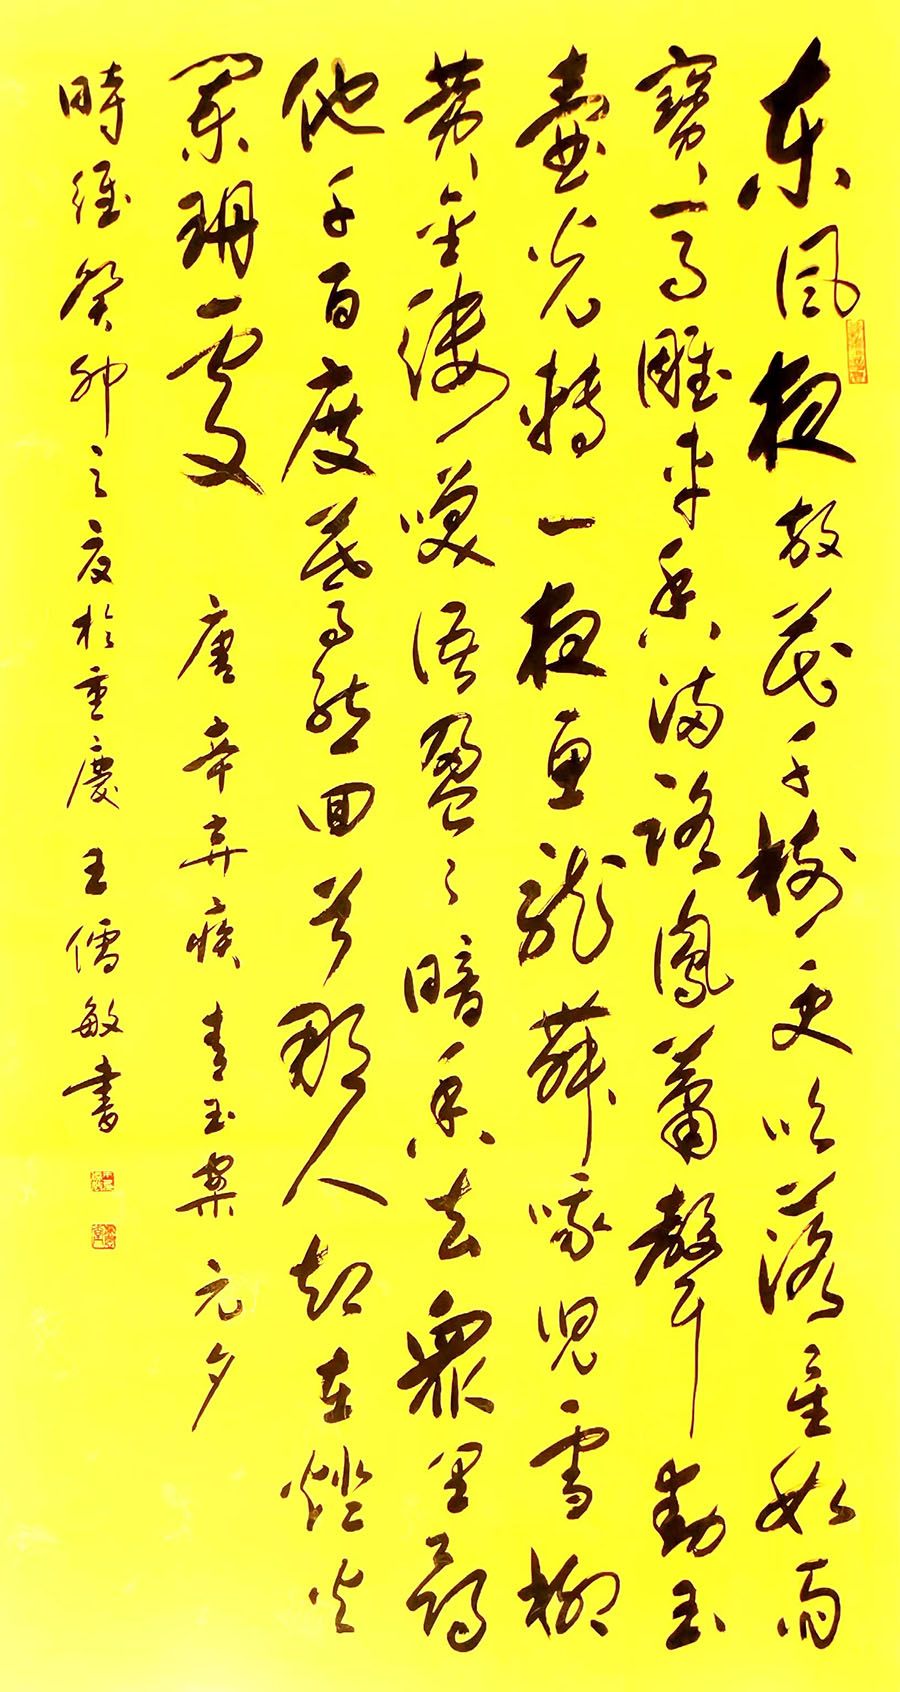 東風夜放花千樹更吹落星如雨
寶馬雕車香滿路鳳蕭聲動玉
壺光轉一夜魚龍舞蛾兒雪柳
黄金縷咲語盈〻暗香去衆里尋
他千百度驀然回首那人却在燈火
闌珊處 唐辛弃疾青玉案元夕
時維癸卯之夏於重慶王儒敏書